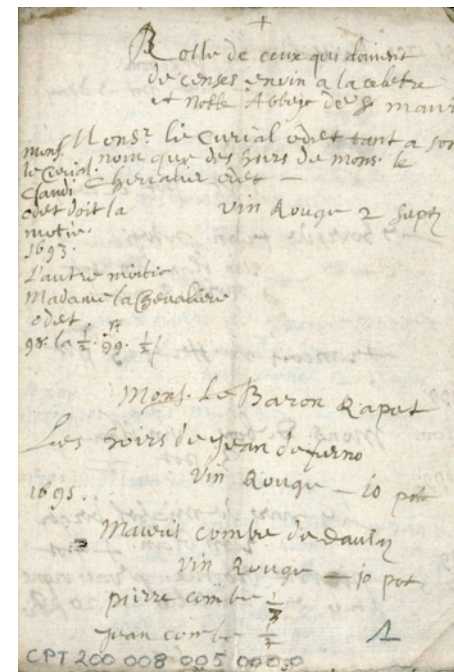 +
Rolle de ceux qui doivent
de censes en vin a la celebre
et noble Abbeye de St mauri
Monsr. le Curial odet tant a son
nom que des hoirs de mons. le
Chevalier odet —
vin Rouge 2 septz
mons.
le Curial.
Claudi
odet doit la
motie.
1693.
L'autre moitie
Madame la Chevaliere
odet.
98. la ½. 99. ½
Mons. Le Baron Rapet
Les hoirs de Jean de
vin Rouge — 10 pot
1695.
combe de
vin Rouge — 10 pot
pierre combe ½
Jean combe ½
1
CPT 200 008 005 000 0